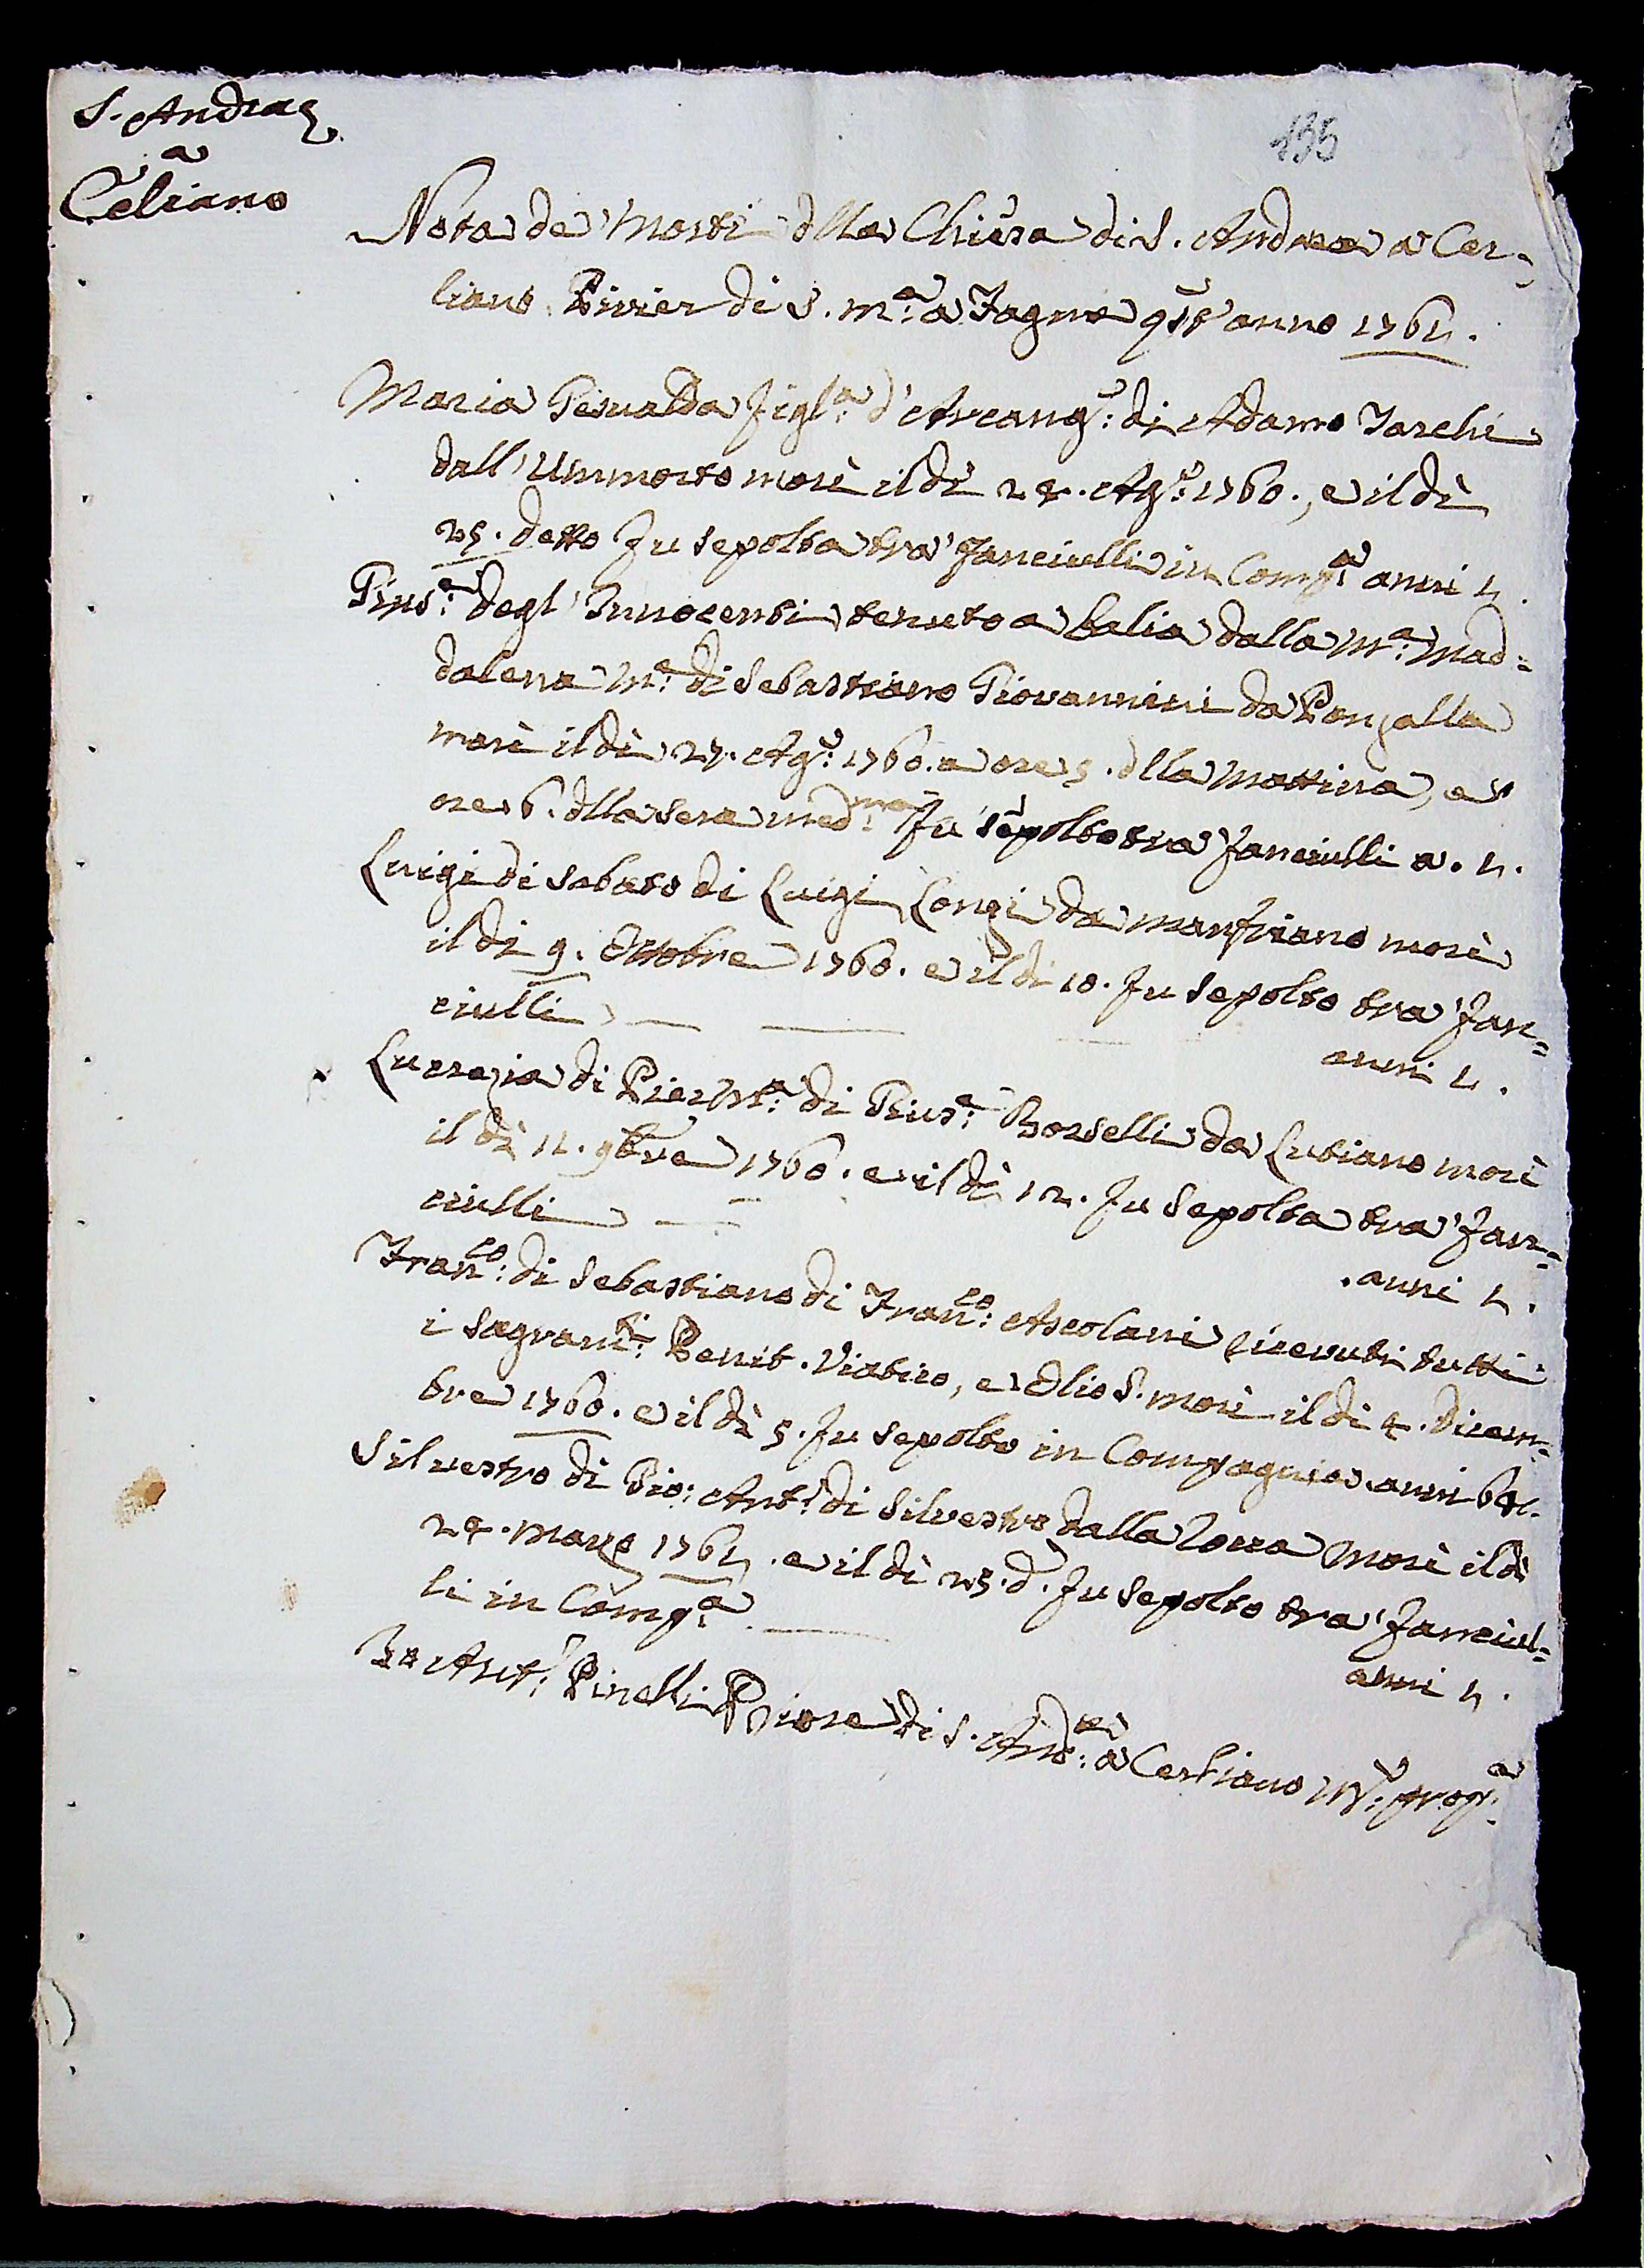 S. Andrea
a
Celiano
135
Nota de' Morti dlla Chiesa di S. Andrea a Cer=
liano Pivier di S. M.a a Fagna qst' anno 1761.
Maria Gesualda figl.a d'Arcang.o: di Adamo Tarchi
dall' Ummorto morì il dì 24. Ag.o: 1760., e il dì
25. detto fu sepolta tra' fanciulli in Comp.a anni 1.
Gius.e: degl' Innocenti tenuto a balia dalla M.a: Mad=
dalena M.e: di Sebastiano Giovannini da
morì il dì 27. Ag.o: 1760. a ore 5. dlla mattina, e a
ore 6. dlla sera med.ma: fu sepolto tra' fanciulli a. 1.
Luigi di Sabato di Luigi Longi da Manfriano morì
il dì 9. Ottobre 1760. e il dì 10. fu sepolto tra' fan=
ciulli anni 1.
Lucrezia di Pier M.a: di Gius.e: Borselli da Lutiano morì
il dì 11. 9bre 1760. e il dì 12. fu sepolta tra' fan=
ciulli anni 1.
Fran.co: di Sebastiano di Fran.co: Ascolani ricevuti tutti
i Sagram.ti: Penit. Viatico, e Olio S. morì il dì 4. Dicem=
bre 1760. e il dì 5. fu sepolto in Compagnia anni 64.
Silvestro di Gio: Ant.o: di Silvestro dalla morì il dì
24. Marzo 1761. e il dì 25. d.o fu sepolto tra' fanciul=
li in Comp.a anni 1.
Io Ant.o: Pinelli Priore di S. And.ea: a Cerliano m.o: prop.a